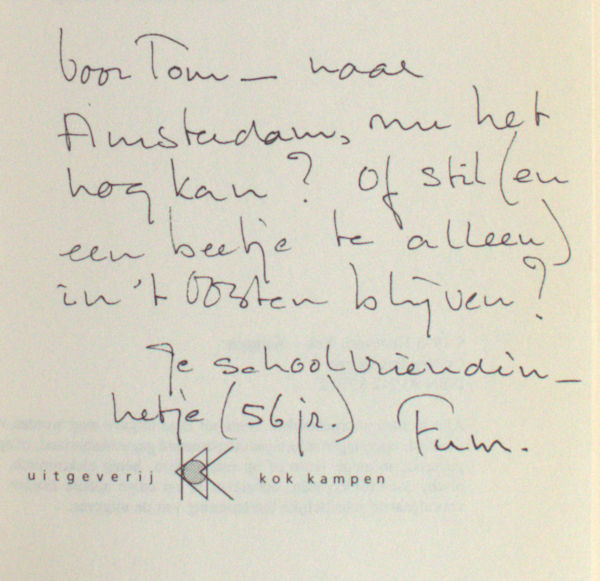 Voor Tom — naar
Amsterdam, nu het
nog kan? Of stil (en
een beetje te alleen)
in 't Oosten blijven?
Je schoolvriendin-
netje (56 jr.) Fum.
uitgeverij kok kampen